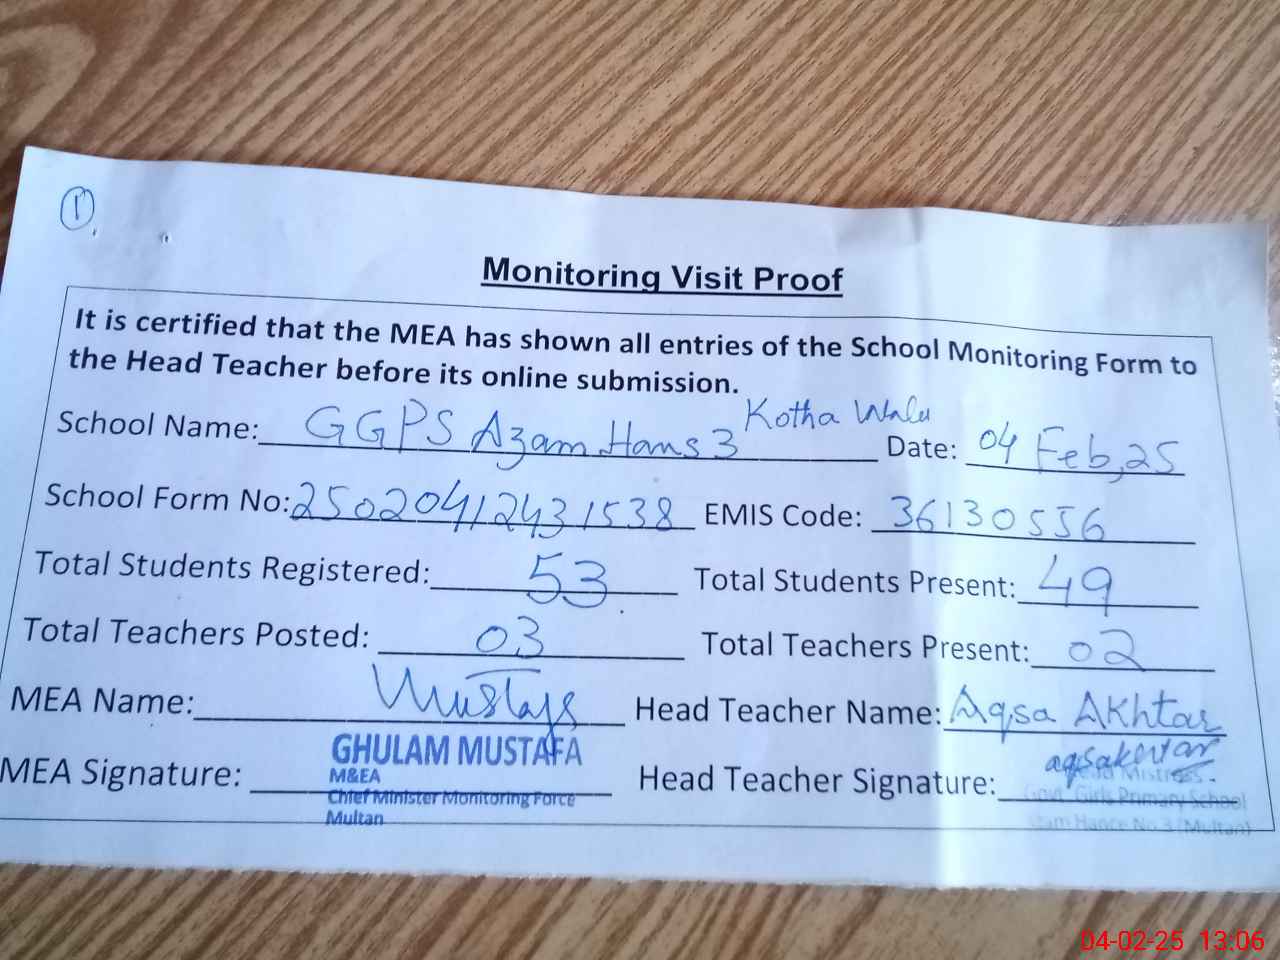 1
Monitoring Visit Proof
It is certified that the MEA has shown all entries of the School Monitoring Form to
the Head Teacher before its online submission.
School Name: GGPS Azam Hans 3 Kotha Wala Date: 04 Feb,25
School Form No: 25020412431538 EMIS Code: 36130556
Total Students Registered: 53 Total Students Present: 49
Total Teachers Posted: 03 Total Teachers Present: 02
MEA Name: Mustafa Head Teacher Name: Aqsa Akhtar
MEA Signature: GHULAM MUSTAFA Head Teacher Signature: aqsakhtar
M&EA Head Mistress
Chief Minister Monitoring Force Govt. Girls Primary School
Multan Hance No 3 (Multan)
04-02-25 13:06